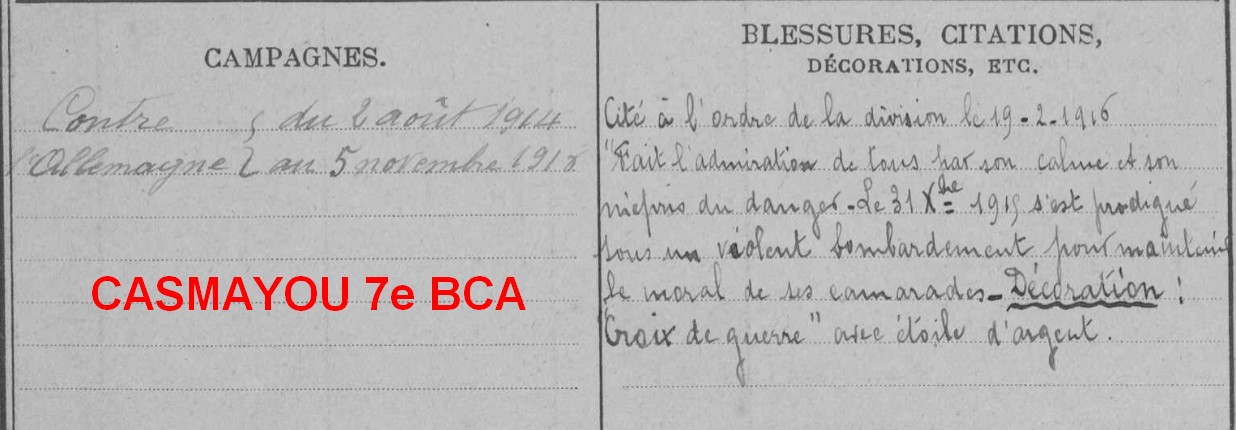 CAMPAGNES.
Contre } du 2 août 1914
l'Allemagne } au 5 novembre 1916
CASMAYOU 7e BCA
BLESSURES, CITATIONS,
DÉCORATIONS, ETC.
Cité à l'ordre de la division le 19-2-1916
"Fait l'admiration de tous par son calme et son
mépris du danger - Le 31 Xbre 1915 s'est prodigué
sous un violent bombardement pour maintenir
le moral de ses camarades - Décoration :
"Croix de guerre" avec étoile d'argent.